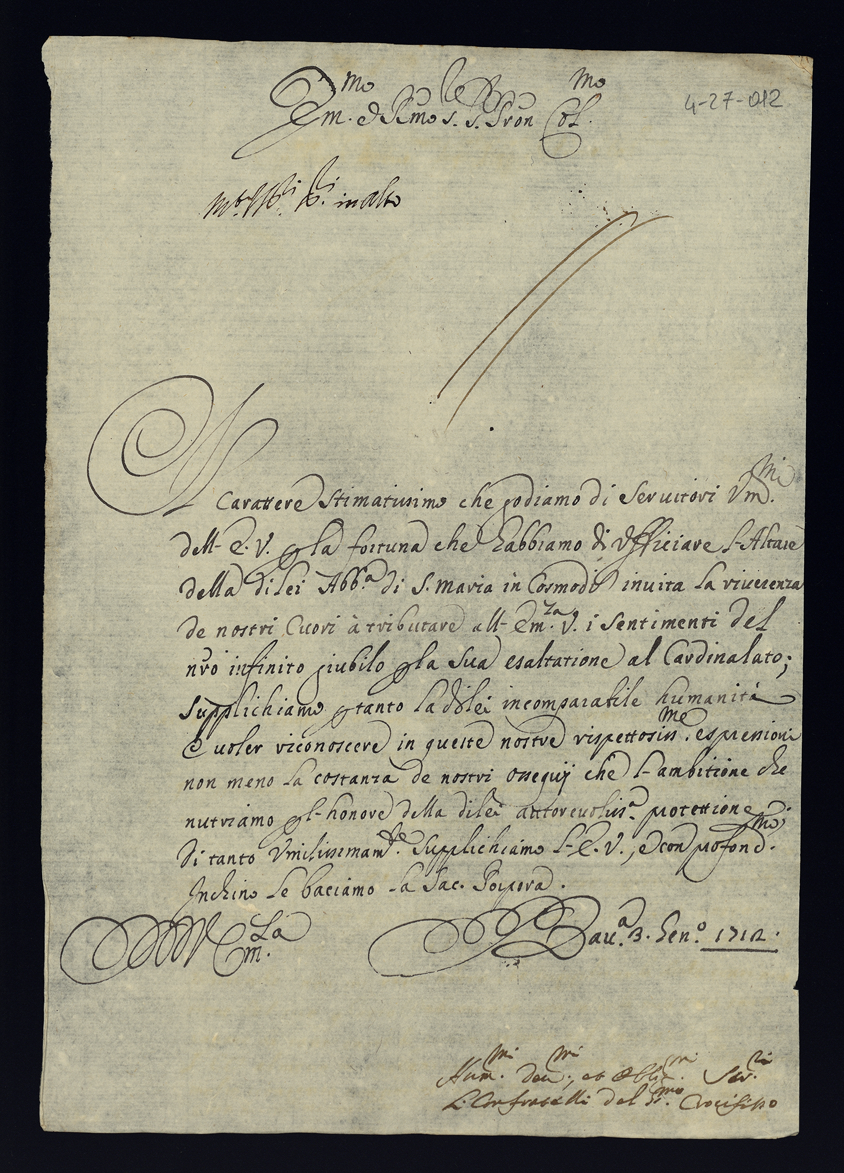 4-27-012
Em.mo e R.mo S. S. Pron Col.mo
in alto
Il Carattere stimatissimo che godiamo di Servitori Vm.mi
dell' E. V. p la fortuna che habbiamo di Vfficiare l'Altare
della di lei Abb.a di S. Maria in Cosmodi invita la riverenza
de nostri Cuori à tributare all' Em.za V. i sentimenti del
nro infinito giubilo p la sua esaltatione al Cardinalato;
supplichiamo p tanto la di lei incomparabile humanità
è voler riconoscere in queste nostre rispettosiss.me espressioni
non meno la costanza de nostri ossequij che l'ambitione che
nutriamo p l'honore della di lei autorevoliss.a protettione
di tanto Vmilissimam.te supplichiamo l'E. V., e con profond.mo
Inchino le baciamo la Sac. Porpora.
Rav.a 3. Gen.o 1712.
Hum.mi Dev.mi, et Obli.mi Ser.ri
Li Confratelli del SS.mo Crocifisso